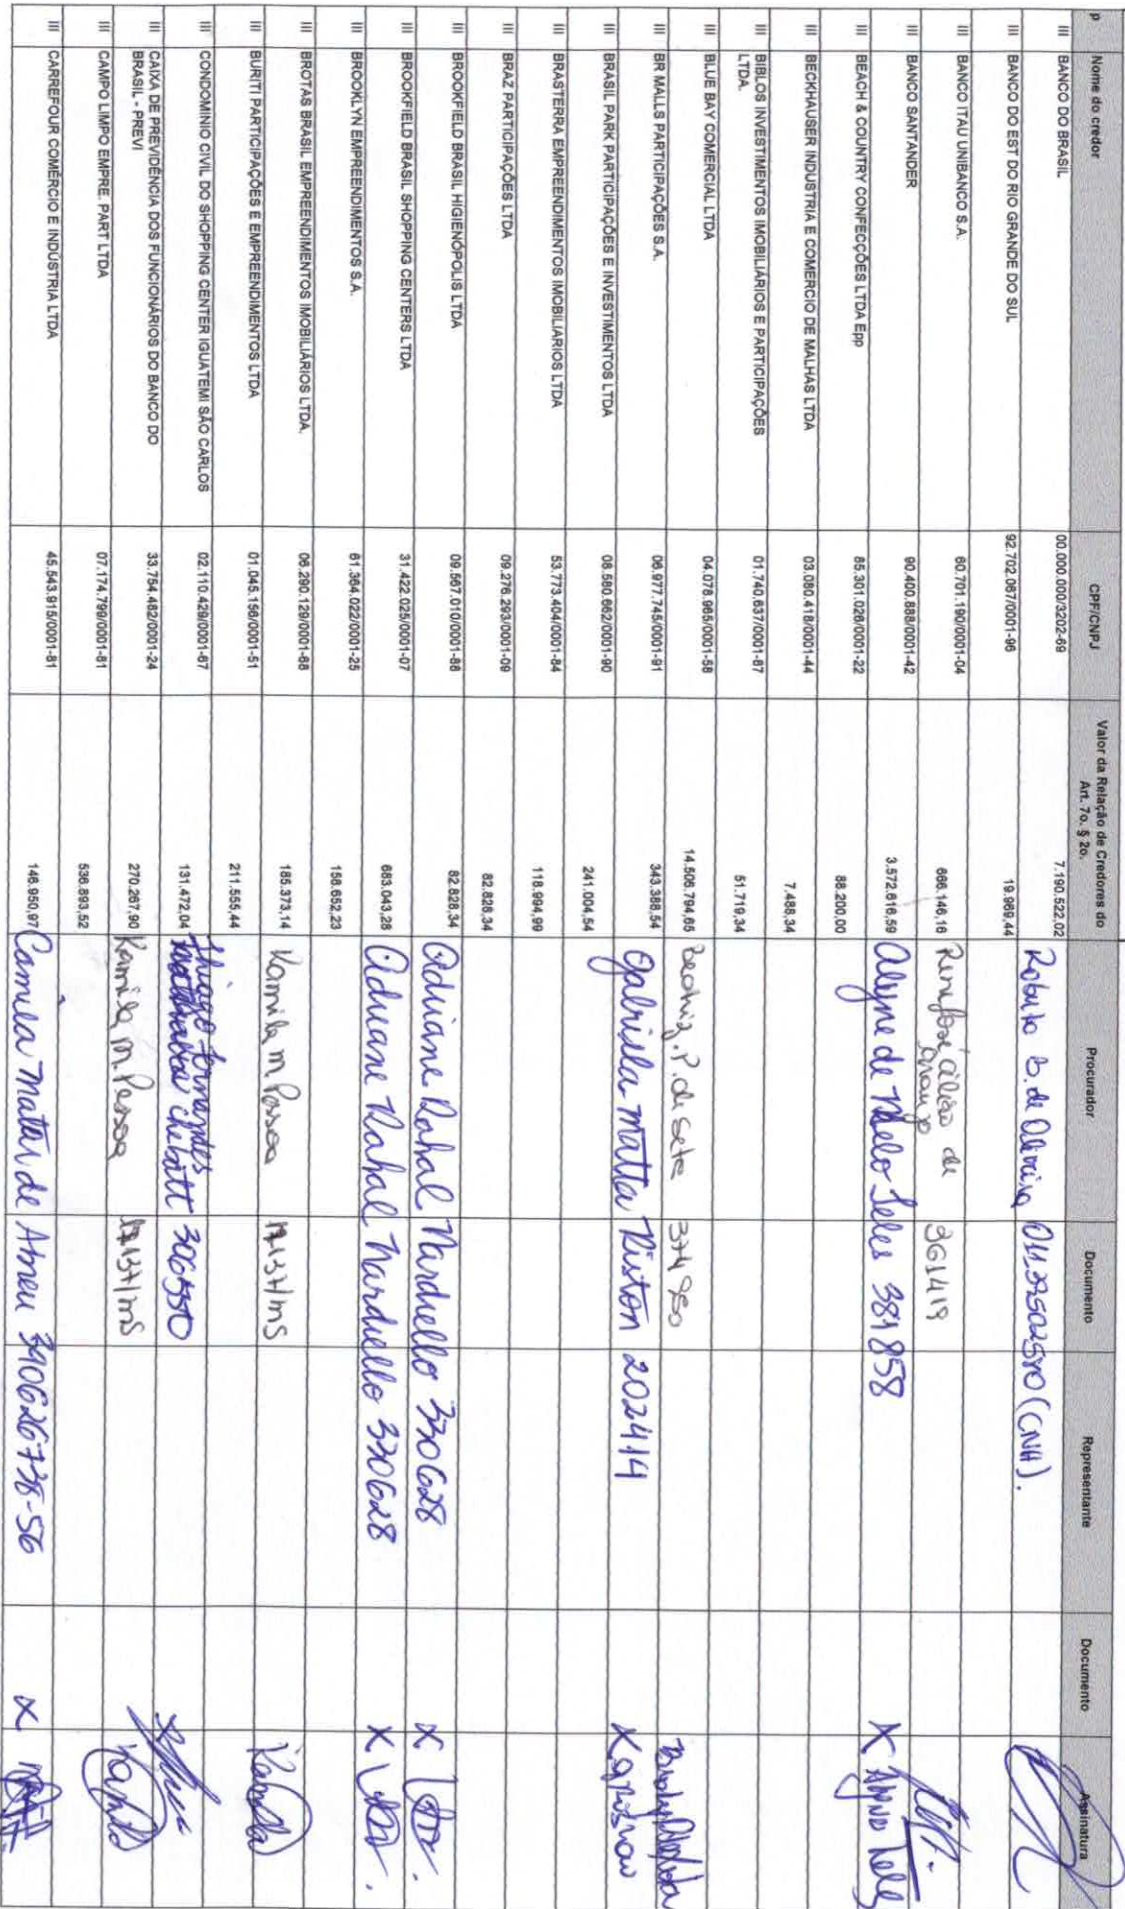 p Nome do credor CPF/CNPJ Valor da Relação de Credores do Art. 7o. § 2o. Procurador Documento Representante Documento Assinatura
III BANCO DO BRASIL 00.000.000/3202-69 7.190.522,02 Roberto B. de Oliveira (CNH).
III BANCO DO EST DO RIO GRANDE DO SUL 92.702.067/0001-96 19.969,44
III BANCO ITAU UNIBANCO S.A. 60.701.190/0001-04 666.146,16 de Araujo 361419
III BANCO SANTANDER 90.400.888/0001-42 3.572.616,59 Alyne de Melo Teles 381858 X
III BEACH & COUNTRY CONFECÇÕES LTDA Epp 85.301.026/0001-22 88.200,00
III BECKHAUSER INDUSTRIA E COMERCIO DE MALHAS LTDA 03.080.418/0001-44 7.488,34
III BIBLOS INVESTIMENTOS IMOBILIÁRIOS E PARTICIPAÇÕES LTDA. 01.740.637/0001-87 51.719,34
III BLUE BAY COMERCIAL LTDA 04.078.965/0001-58 14.506.794,65 Beatriz P. de
III BR MALLS PARTICIPAÇÕES S.A. 06.977.745/0001-91 343.388,54 Gabriella Matta Ristow 202414 X
III BRASIL PARK PARTICIPAÇÕES E INVESTIMENTOS LTDA 08.580.662/0001-90 241.004,54
III BRASTERRA EMPREENDIMENTOS IMOBILIARIOS LTDA 53.773.404/0001-84 118.994,99
III BRAZ PARTICIPAÇÕES LTDA 09.276.293/0001-09 82.828,34
III BROOKFIELD BRASIL HIGIENÓPOLIS LTDA 09.567.010/0001-88 82.828,34 Adriane Rahal Nardiello 330628 X
III BROOKFIELD BRASIL SHOPPING CENTERS LTDA 31.422.025/0001-07 683.043,28 Adriane Rahal Nardiello 330628 X
III BROOKLYN EMPREENDIMENTOS S.A. 61.364.022/0001-25 158.652,23
III BROTAS BRASIL EMPREENDIMENTOS IMOBILIÁRIOS LTDA. 06.290.129/0001-68 185.373,14 Kamila M. Pessoa 17137/MS
III BURITI PARTICIPAÇÕES E EMPREENDIMENTOS LTDA 01.045.156/0001-51 211.555,44
III CONDOMINIO CIVIL DO SHOPPING CENTER IGUATEMI SÃO CARLOS 02.110.429/0001-67 131.472,04 Thiago Fernandes Chebatt 306550
III CAIXA DE PREVIDÊNCIA DOS FUNCIONÁRIOS DO BANCO DO BRASIL - PREVI 33.754.482/0001-24 270.267,90 Kamila M. Pessoa 17137/MS
III CAMPO LIMPO EMPRE. PART LTDA 07.174.799/0001-81 536.893,52
III CARREFOUR COMÉRCIO E INDÚSTRIA LTDA 45.543.915/0001-81 146.950,97 Camila Mattar de Abreu 390626738-56 X